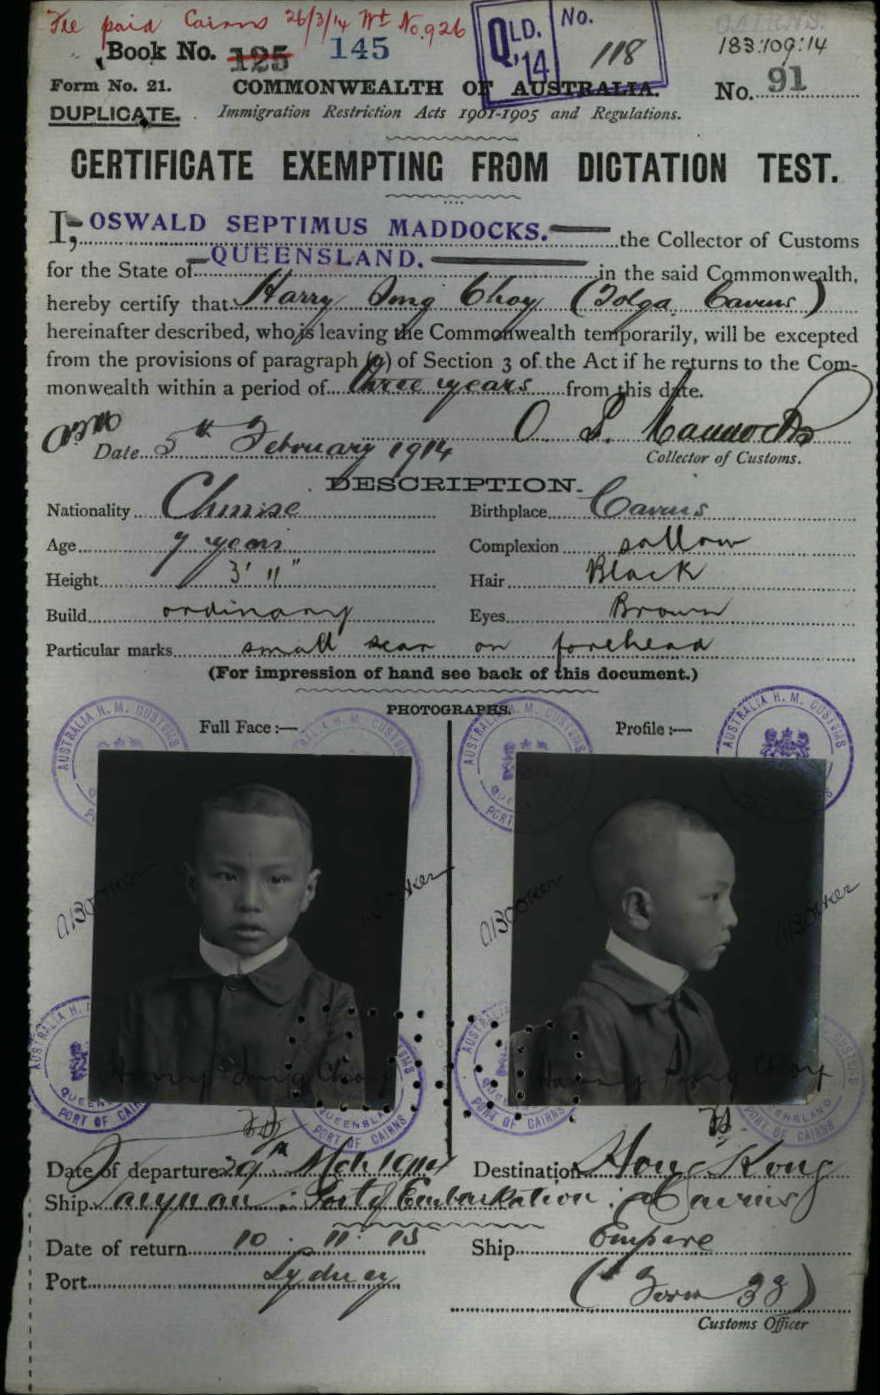 Fee paid Cairns 26/3/14 Wt No. 926
Book No. 125 145
QLD. '14 No. 118
CAIRNS.
183:109:14
Form No. 21. COMMONWEALTH OF AUSTRALIA. No. 91
DUPLICATE. Immigration Restriction Acts 1901-1905 and Regulations.
CERTIFICATE EXEMPTING FROM DICTATION TEST.
I, OSWALD SEPTIMUS MADDOCKS. the Collector of Customs
for the State of QUEENSLAND. in the said Commonwealth,
hereby certify that Harry Song Choy (Tolga Cairns)
hereinafter described, who is leaving the Commonwealth temporarily, will be excepted
from the provisions of paragraph (a) of Section 3 of the Act if he returns to the Com-
monwealth within a period of three years from this date.
O. S. Maddocks
Date 5th February 1914
Collector of Customs.
DESCRIPTION.
Nationality Chinese Birthplace Cairns
Age 7 years Complexion sallow
Height 3' 11" Hair Black
Build ordinary Eyes Brown
Particular marks small scar on forehead
(For impression of hand see back of this document.)
PHOTOGRAPHS.
Full Face :— Profile :—
AUSTRALIA H. M. CUSTOMS
QUEENSLAND
PORT OF CAIRNS
A Booker
Harry Song Choy
Date of departure 29th Mch 1914 Destination Hong Kong
Ship Taiyuan : Port of Embarkation : Cairns
Date of return 10 . 11 . 15 Ship Empire
Port Sydney (Form 32)
Customs Officer